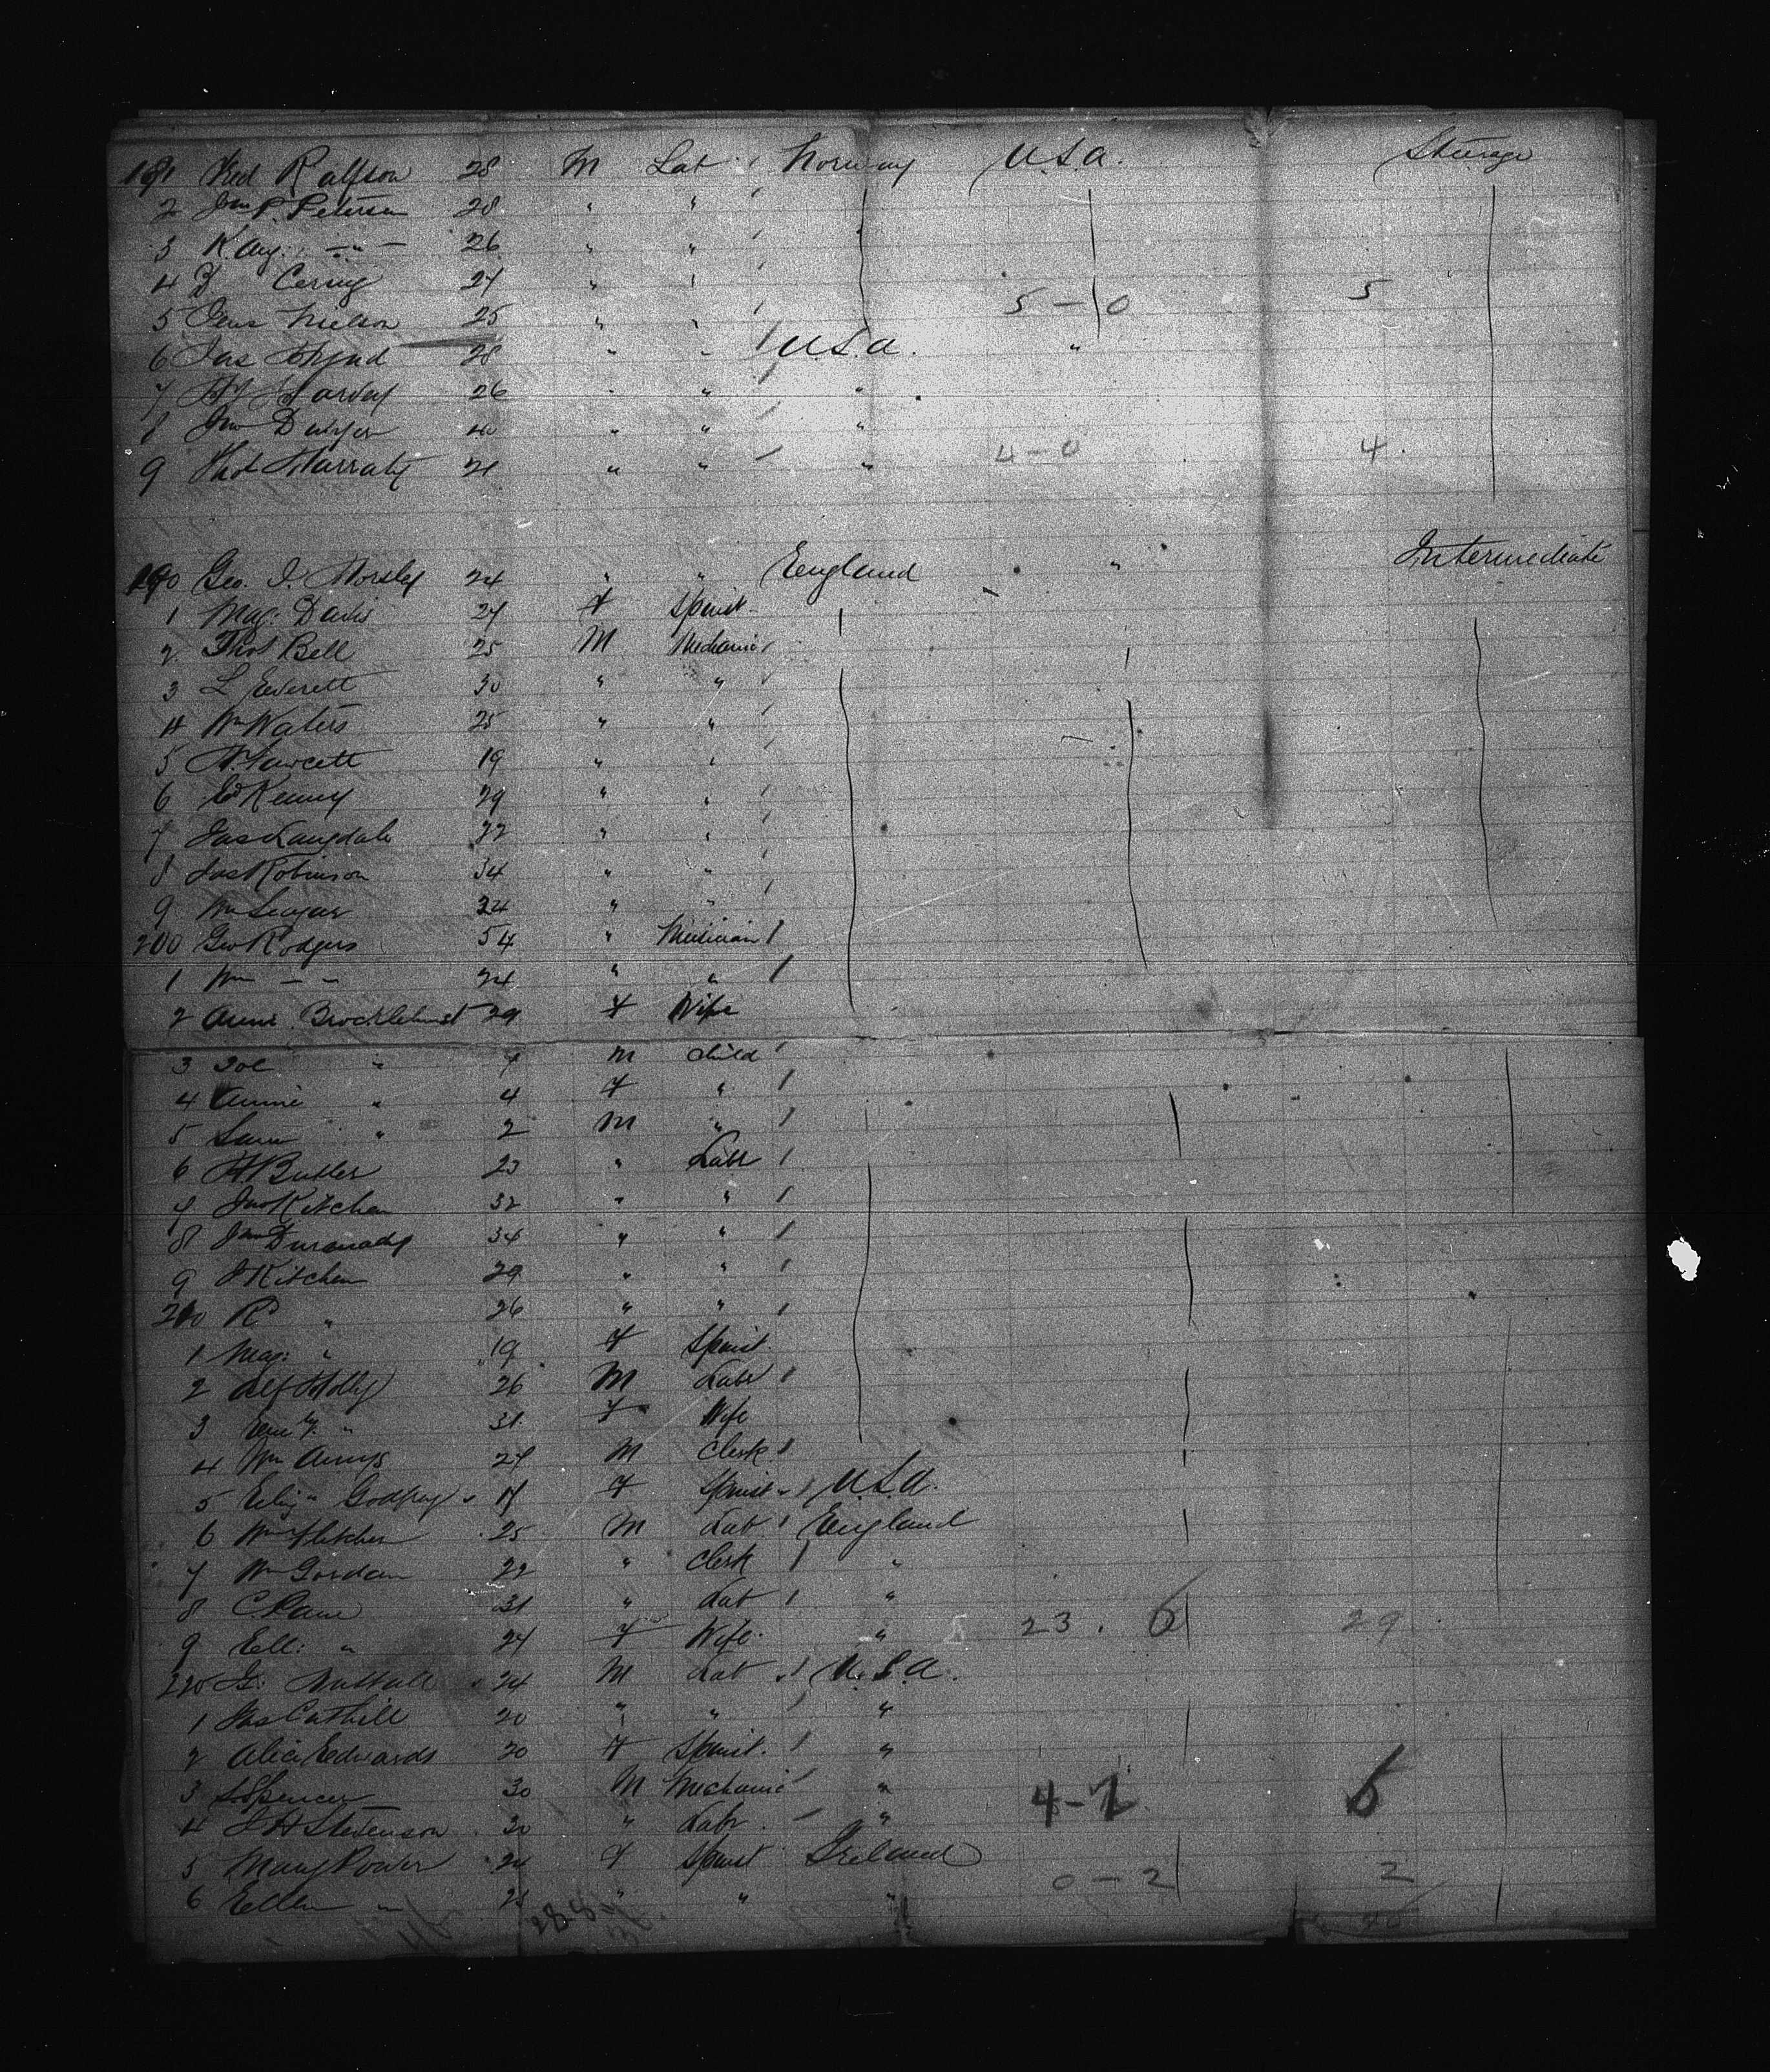 181 Fred Ralfson 28 M Lab Norway U.S.A. Steerage
2 Jno P. Peterson 28 " "
3 K Aug. — " — 26 " "
4 Cering 27 " "
5 Jens Nielson 25 " " 5 - 0 5
6 Jas 28 " " U.S.A. "
7 Hy Harvey 26 " " "
8 Jno Dwyer 40 " " "
9 Thos 21 " " " 4 - 0 4
190 Geo. I. Horsley 24 " " England " Intermediate
1 Mag: Davis 27 F Spinst
2 Thos Bell 25 M Mechanic
3 L Everett 30 " "
4 Wm Waters 25 " "
5 H Fawcett 19 " "
6 Ed Kenny 29 " "
7 Jas Langdale 22 " "
8 Jas Robinson 34 " "
9 Wm 24 " "
200 Geo Rodgers 54 "
1 Wm — " — 24 " "
2 Annie Brocklehurst 29 F Wife
3 Joe " 7 M Child
4 Annie " 4 F "
5 Sam " 2 M "
6 H Butler 23 " Labr
7 Jno Kitchen 32 " "
8 Jno 34 " "
9 J Kitchen 29 " "
210 R " 26 " "
1 Mag: " 19 F Spinst
2 Alf Holly 26 M Labr
3 Emy. " 31 F Wife
4 Wm Amys 27 M Clerk
5 Eliz Godfrey 17 F Spinst U.S.A.
6 Wm Fletcher 25 M Lab England
7 Wm Gordon 22 " Clerk "
8 C. Pam 31 " Lab "
9 Ell: " 24 F Wife " 23 . 6 29
220 G: Nuttall 24 M Lab U.S.A.
1 Jas Cathill 20 " " "
2 Alice Edwards 20 F Spinst. "
3 S Spencer 30 M Mechanic " 4 - 1
4 J H Stevenson 30 " Labr "
5 Mary Power 24 F Spinst Ireland
6 Ellen " 28 " " " 0 - 2 2